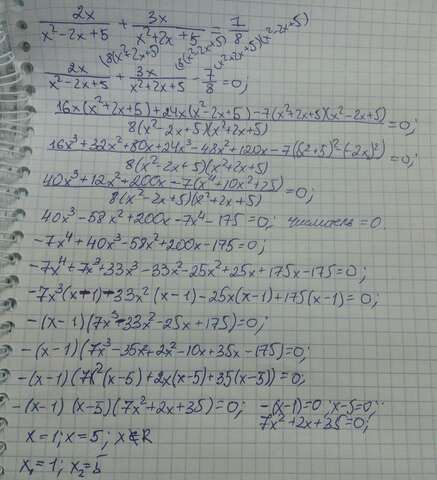 2x/(x²-2x+5) + 3x/(x²+2x+5) = 7/8
(8(x²+2x+5) (8(x²-2x+5) (x²+2x+5)(x²-2x+5)
2x/(x²-2x+5) + 3x/(x²+2x+5) - 7/8 = 0;
(16x(x²+2x+5)+24x(x²-2x+5)-7(x²+2x+5)(x²-2x+5))/(8(x²-2x+5)(x²+2x+5)) = 0;
(16x³+32x²+80x+24x³-48x²+120x-7((x²+5)²-(-2x)²))/(8(x²-2x+5)(x²+2x+5)) = 0;
(40x³+12x²+200x-7(x⁴+10x²+25))/(8(x²-2x+5)(x²+2x+5)) = 0;
40x³-58x²+200x-7x⁴-175=0; числитель=0.
-7x⁴+40x³-58x²+200x-175=0;
-7x⁴+7x³+33x³-33x²-25x²+25x+175x-175=0;
-7x³(x-1)+33x²(x-1)-25x(x-1)+175(x-1)=0;
-(x-1)(7x³-33x²-25x+175)=0;
-(x-1)(7x³-35x+2x²-10x+35x-175)=0;
-(x-1)(7x²(x-5)+2x(x-5)+35(x-5))=0;
-(x-1)(x-5)(7x²+2x+35)=0; -(x-1)=0; x-5=0;
7x²+2x+35=0;
x=1; x=5; x∉R
x₁=1; x₂=5